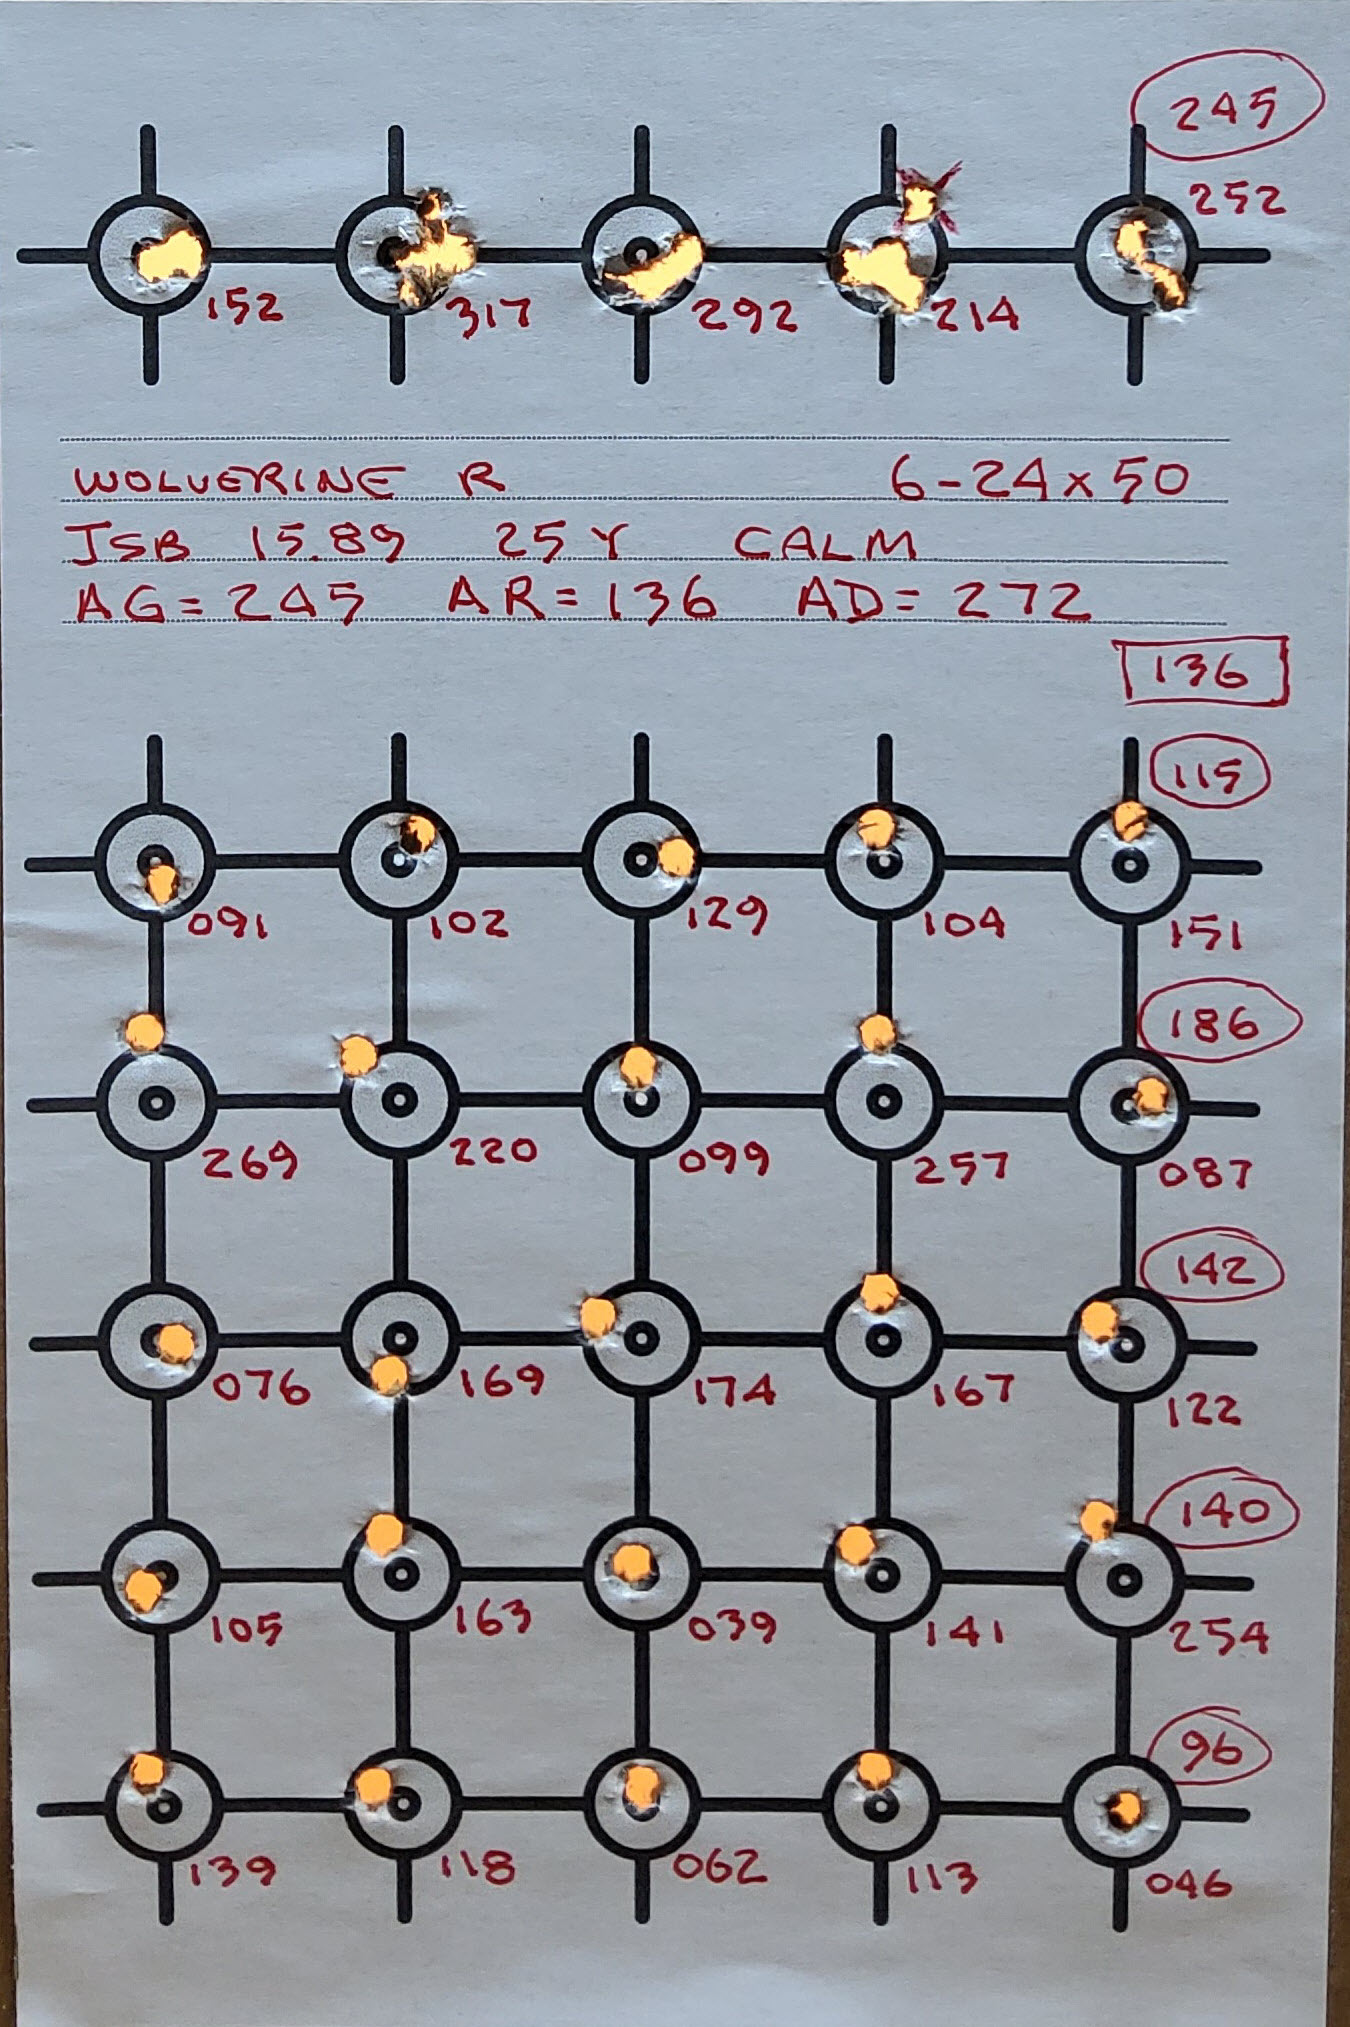 245
252
152 317 292 214
WOLVERINE R 6-24x50
JSB 15.89 25Y CALM
AG=245 AR=136 AD=272
136
115
091 102 129 104 151
186
269 220 099 257 087
142
076 169 174 167 122
140
105 163 039 141 254
96
139 118 062 113 046